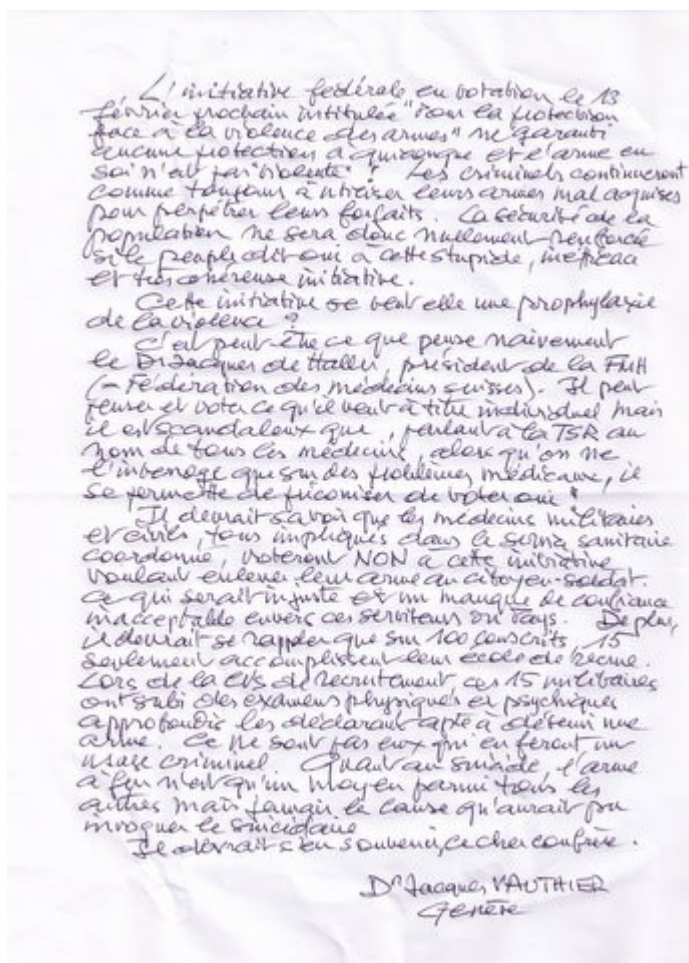 L'initiative fédérale en votation le 13
février prochain intitulée "Pour la protection
face à la violence des armes" ne garanti
aucune protection à quiconque et l'arme en
soi n'est pas "violente" ! Les criminels continueront
comme toujours à utiliser leurs armes mal acquises
pour perpétrer leurs forfaits. La sécurité de la
population ne sera donc nullement renforcée
si le peuple dit oui à cette stupide, inefficace
et très onéreuse initiative.
Cette initiative se veut elle une prophylaxie
de la violence ?
C'est peut-être ce que pense naïvement
le Dr Jacques de Haller, président de la FMH
(= Fédération des médecins suisses). Il peut
penser et voter ce qu'il veut à titre individuel mais
il est scandaleux que, parlant à la TSR au
nom de tous les médecins, alors qu'on ne
l'interroge que sur des problèmes médicaux, il
se permette de préconiser de voter oui !
Il devrait savoir que les médecins militaires
et civils, tous impliqués dans le service sanitaire
coordonné, voteront NON à cette initiative
voulant enlever leur arme au citoyen-soldat.
Ce qui serait injuste et un manque de confiance
inacceptable envers ces serviteurs du Pays. De plus,
il devrait se rappeler que sur 100 conscrits, 15
seulement accomplissent leur école de recrue.
Lors de la de recrutement ces 15 militaires
ont subi des examens physiques et psychiques
approfondis les déclarant apte à détenir une
arme. Ce ne sont pas eux qui en feront un
usage criminel. Quant au suicide, l'arme
à feu n'est qu'un moyen parmi tous les
autres mais jamais la cause qu'aurait pu
invoquer le suicidaire
Il devrait s'en souvenir, ce cher confrère.
Dr Jacques VAUTHIER
Genève